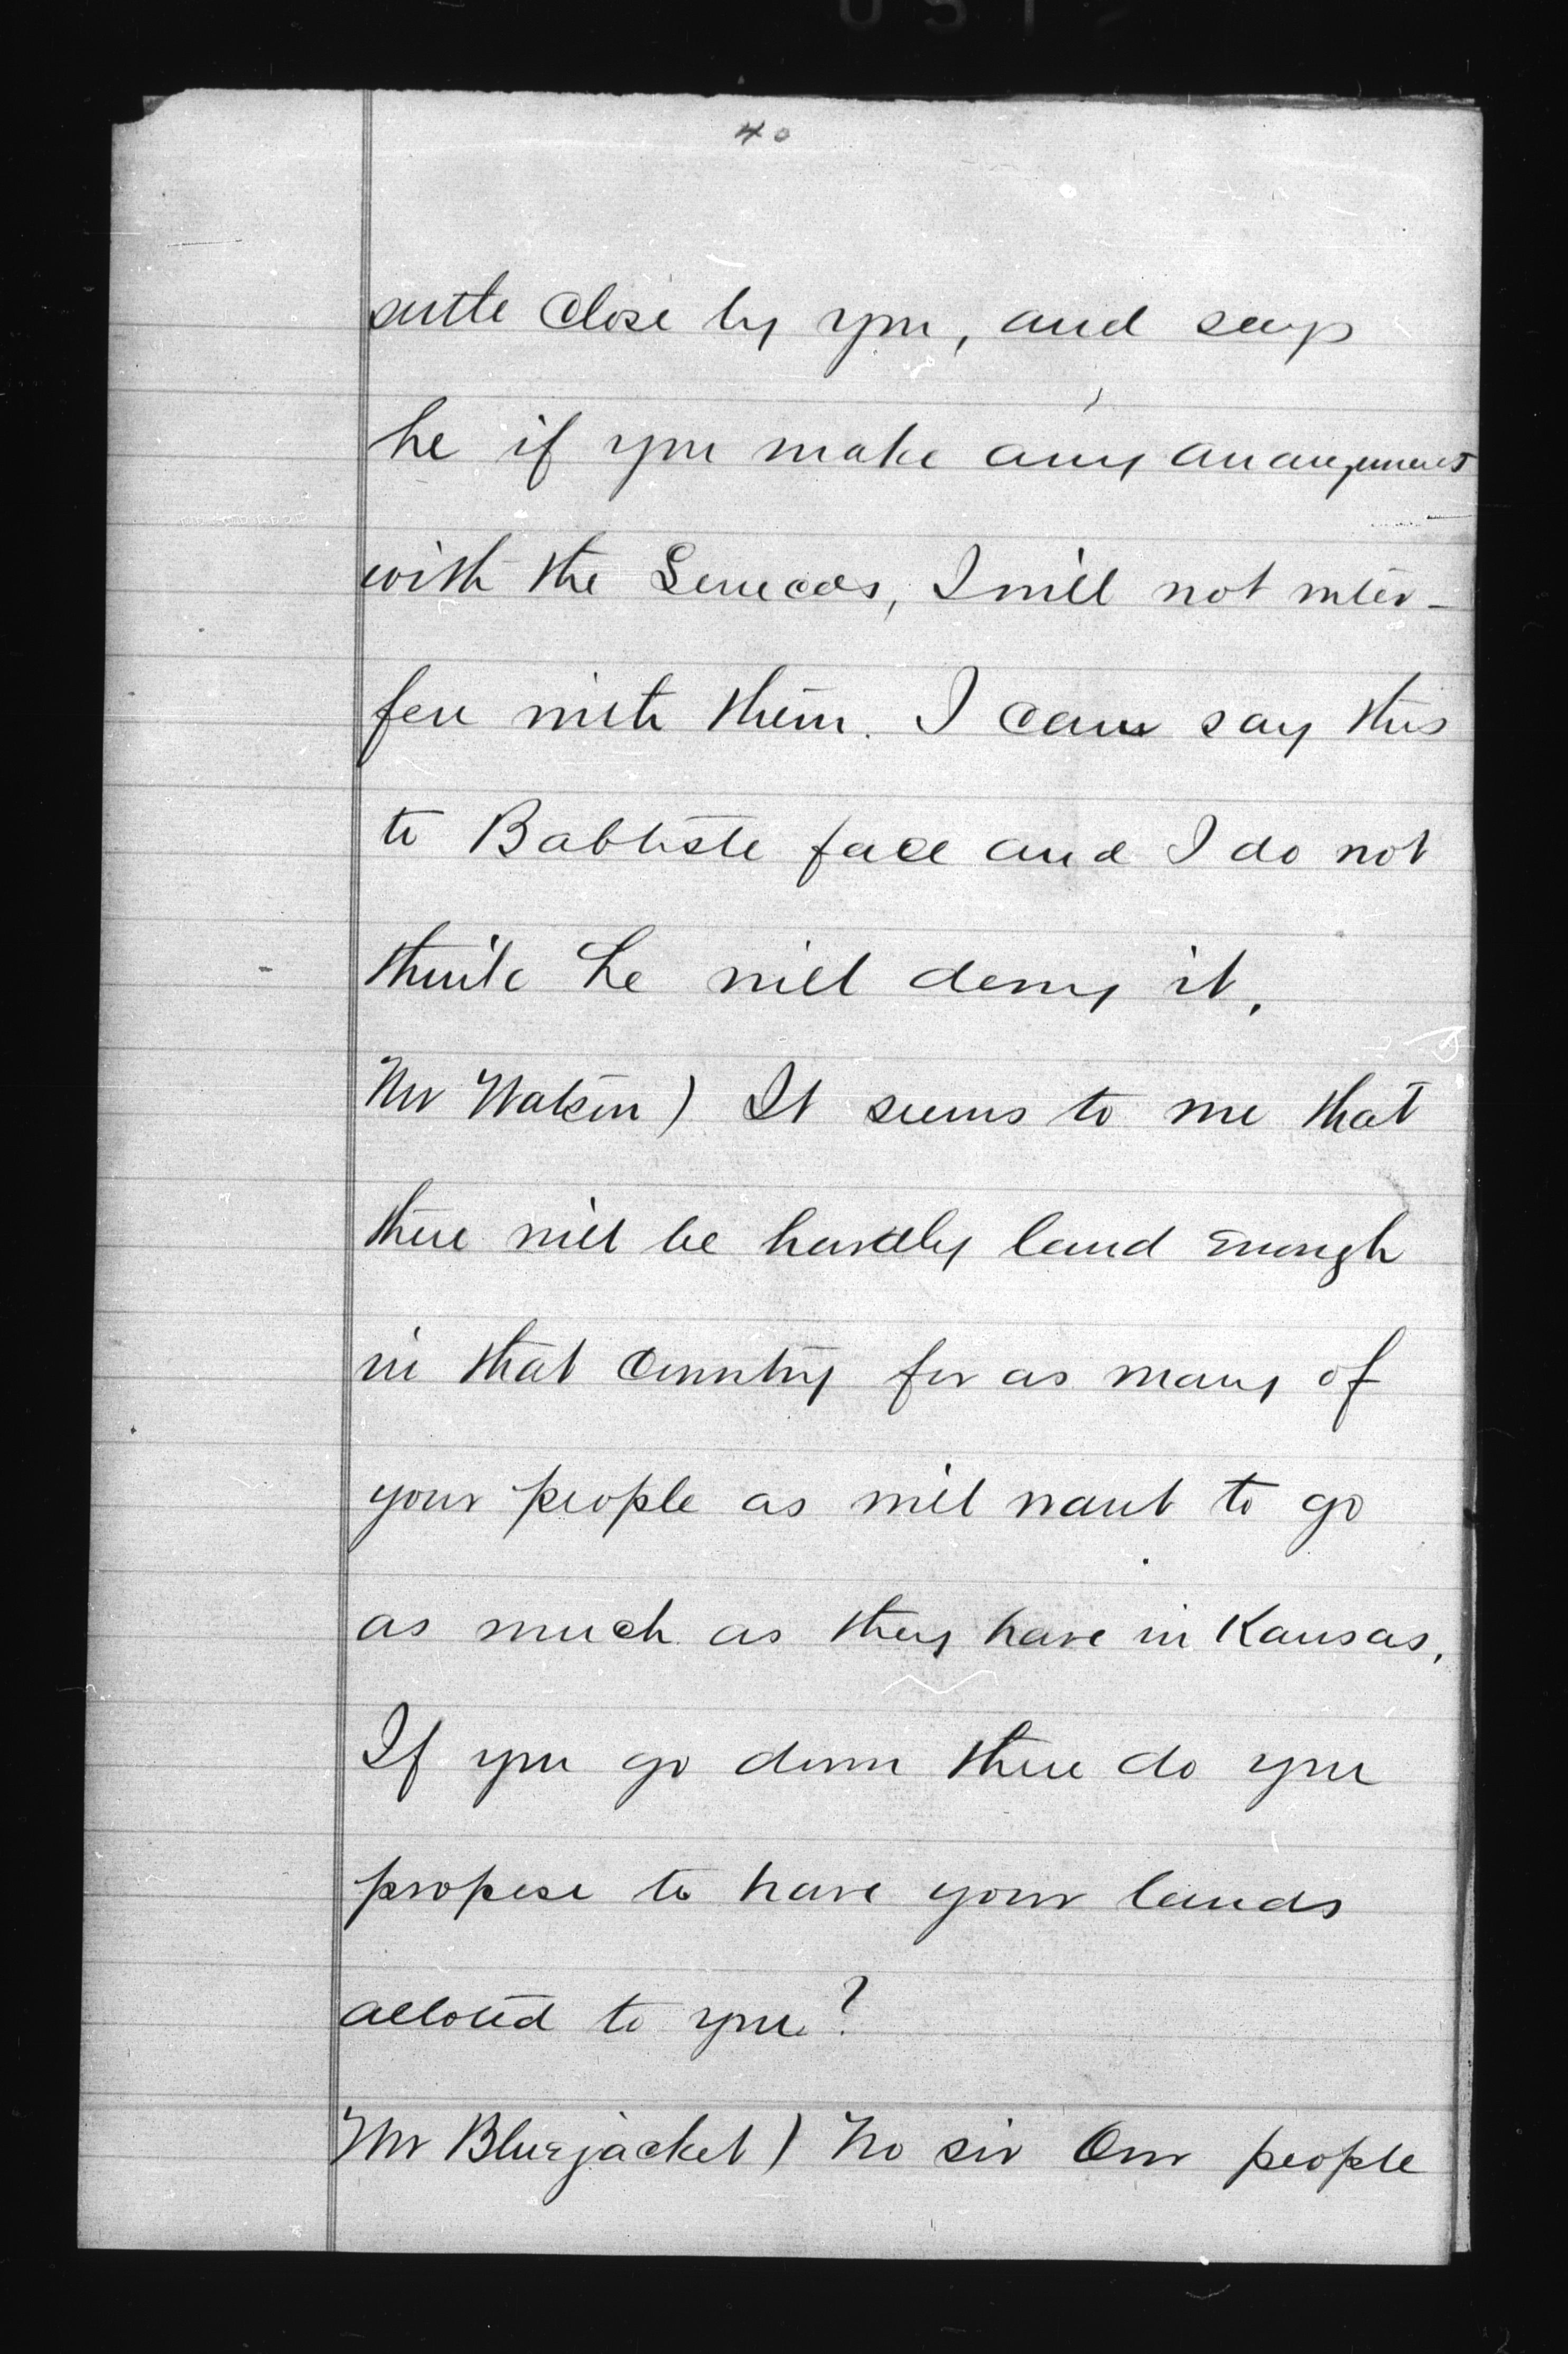 40
settle close by you, and says
he if you make any arrangement
with the Senecas, I will not inter-
fere with them. I can say this
to Babtiste face and I do not
think he will deny it.
Mr Watson) It seems to me that
there will be hardly land enough
in that country for as many of
your people as will want to go
as much as they have in Kansas.
If you go down there do you
propose to have your lands
alloted to you?
Mr Bluejacket) No sir Our people